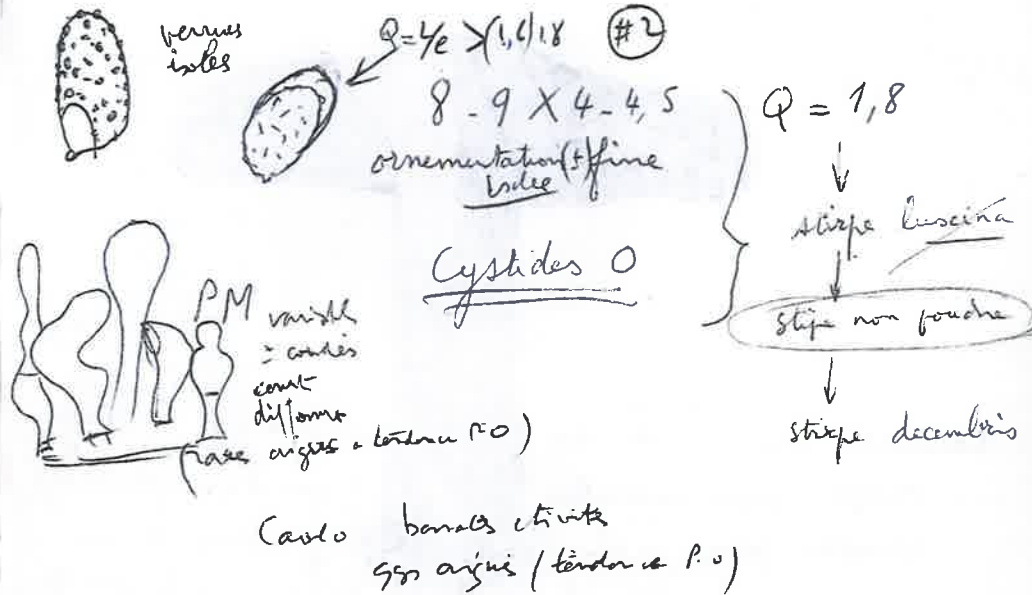 verrues
isolées
Q = L/e > (1,6) 1,8
#2
8 - 9 X 4 - 4,5
ornementation (±) fine
isolée
Cystides 0
Q = 1,8
stirpe luscina
stipe non poudré
stirpe decembris
PM variables
± coudés
court
difforme
(rares aigus à tendance P.O)
Caulo banales étirées
qqs aiguës (tendance P.O)